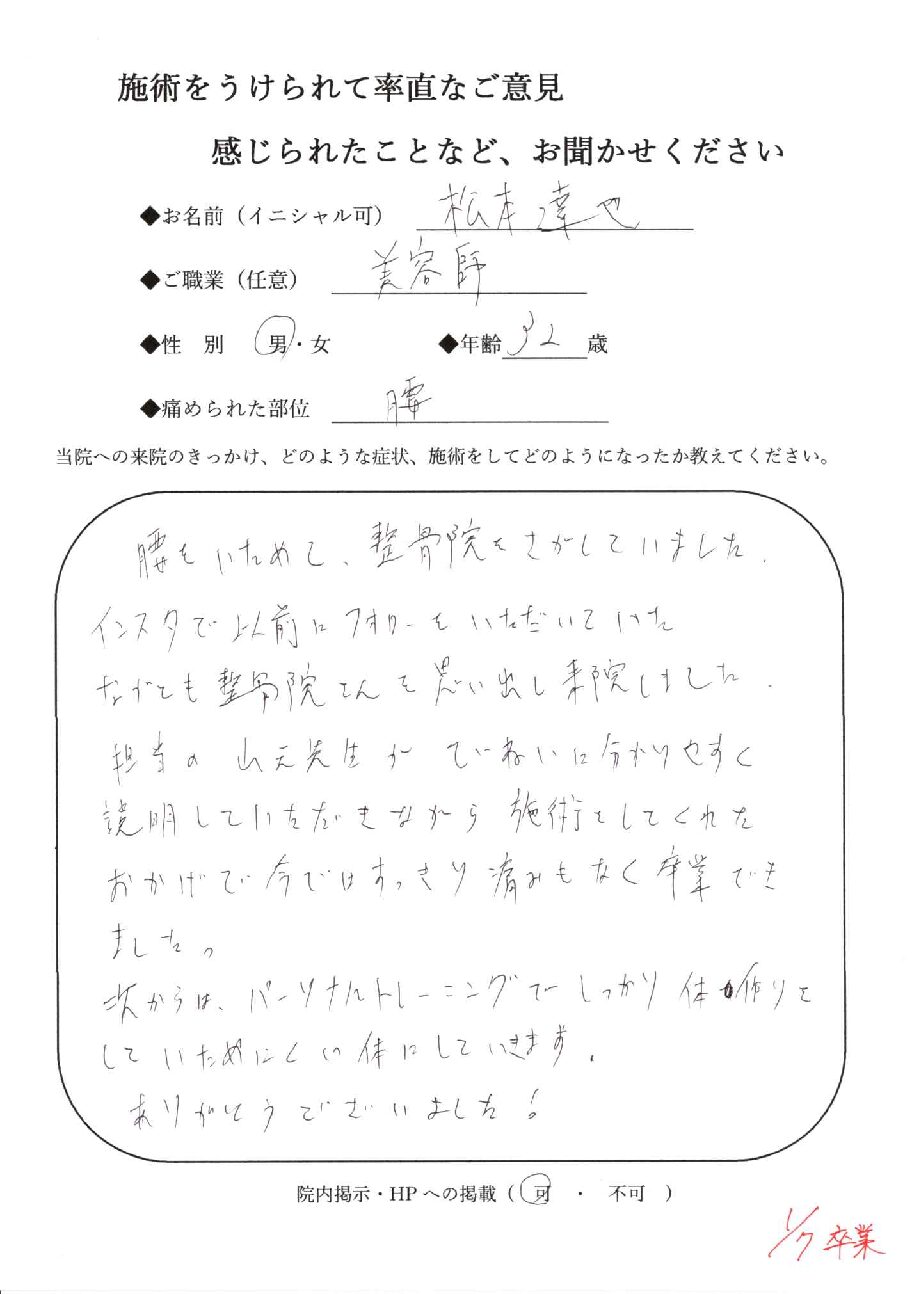 施術をうけられて率直なご意見
感じられたことなど、お聞かせください
◆お名前（イニシャル可） 松本達也
◆ご職業（任意） 美容師
◆性 別 男・女 ◆年齢 32 歳
◆痛められた部位 腰
当院への来院のきっかけ、どのような症状、施術をしてどのようになったか教えてください。
腰をいためて、整骨院をさがしていました.
インスタで以前にフォローをいただいていた
ながとも整骨院さんを思い出し来院しました.
担当の 先生が ていねいに分かりやすく
説明していただきながら 施術をしてくれた
おかげで今ではすっきり痛みもなく卒業でき
ました。
次からは、パーソナルトレーニングでしっかり体作りを
していためにくい体にしていきます.
ありがとうございました!
院内掲示・HPへの掲載（ 可 ・ 不可 ）
1/7 卒業